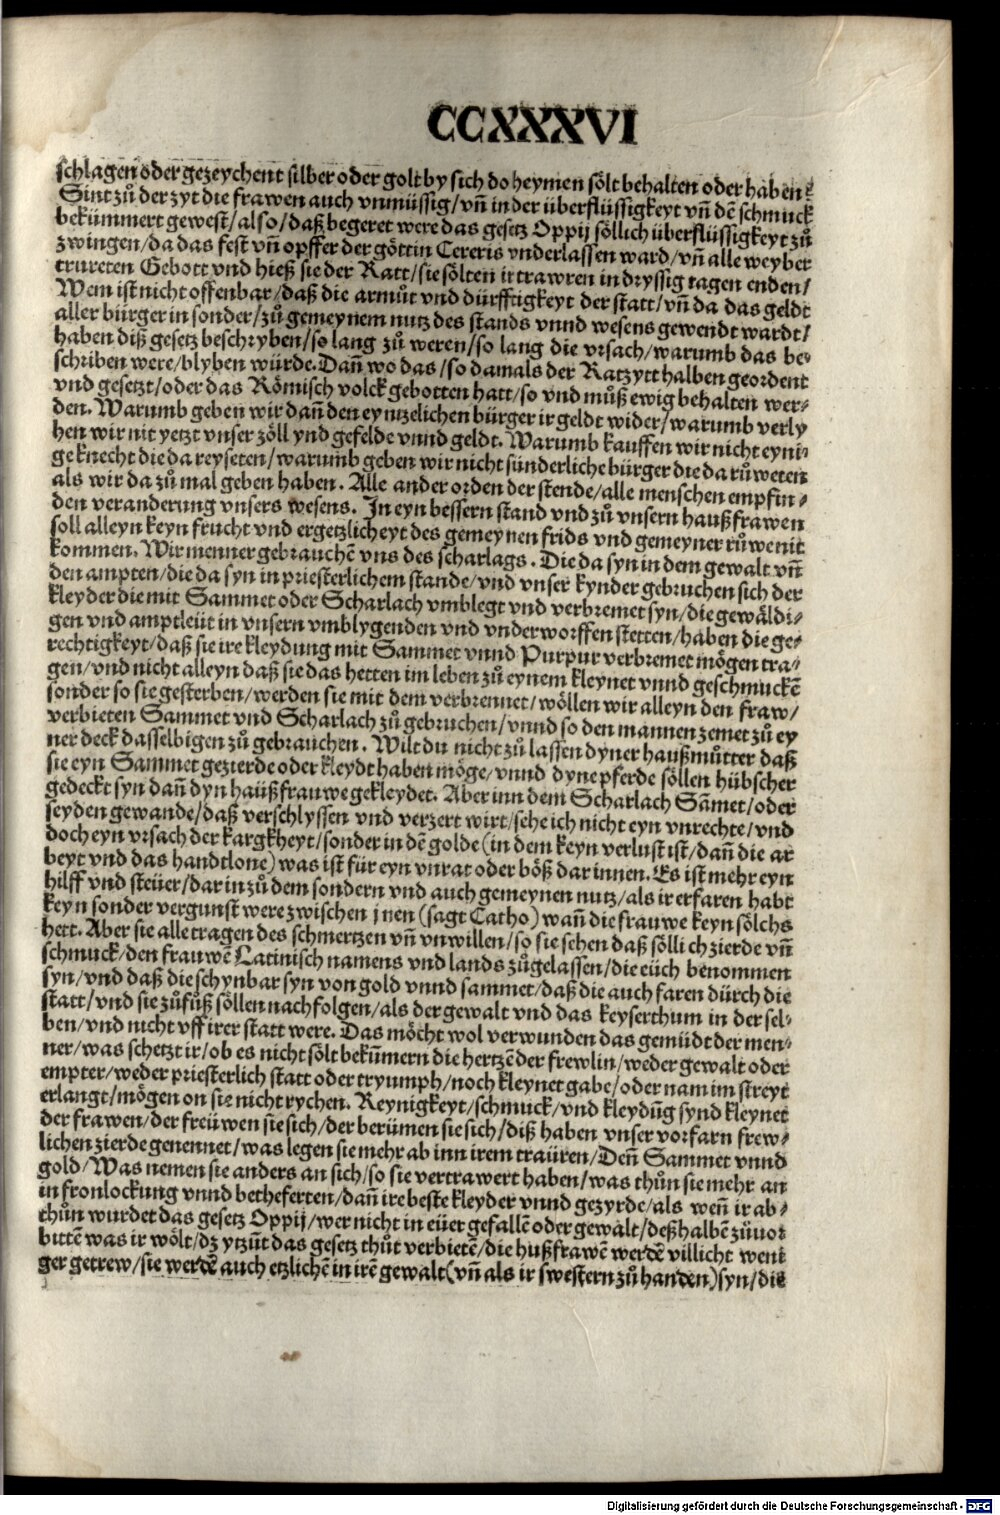 CCXXXVI
schlagen oder gezeychent silber oder golt by sich do heymen sölt behalten oder haben?
Sint zů der zyt die frawen auch vnmüssig/vñ in der überflüssigkeyt vñ dē schmuck
bekümmert gewest/also/daß begeret were das gesetz Oppij söllich überflüssigkeyt zů
zwingen/da das fest vñ opffer der göttin Cereris vnderlassen ward/vñ alle weyber
trureten Gebott vnd hieß sie der Ratt/sie sölten ir trawren in dryssig tagen enden/
Wem ist nicht offenbar/daß die armůt vnd dürfftigkeyt der statt/vñ da das geldt
aller bürger in sonder/zů gemeynem nutz des stands vnnd wesens gewendt wardt/
haben diß gesetz beschryben/so lang zů weren/so lang die vrsach/warumb das be⸗
schriben were/blyben würde. Dañ wo das/so damals der Ratz ytt halben geordent
vnd gesetzt/oder das Römisch volck gebotten hatt/so vnd můß ewig behalten wer⸗
den. Warumb geben wir dañ den eyntzelichen bürger ir geldt wider/warumb verly
hen wir nit yetzt vnser zöll ynd gefelde vnnd geldt. Warumb kauffen wir nicht eyni⸗
ge knecht die da reyseten/warumb geben wir nicht sünderliche bürger die da růweten
als wir da zů mal geben haben. Alle ander orden der stende/alle menschen empfin⸗
den veranderung vnsers wesens. In eyn bessern stand vnd zů vnsern haußfrawen
soll alleyn keyn frucht vnd ergetzlicheyt des gemeynen frids vnd gemeyner růwe nit
kommen. Wir menner gebrauchē vns des scharlags. Die da syn in dem gewalt vñ
den ampten/die da syn in priesterlichem stande/vnd vnser kynder gebruchen sich der
kleyder die mit Sammet oder Scharlach vmblegt vnd verbremet syn/die gewäldi⸗
gen vnd amptleüt in vnsern vmblygenden vnd vnderworffen stetten/haben die ge⸗
rechtigkeyt/daß sie ire kleydung mit Sammet vnnd Purpur verbremet mögen tra⸗
gen/vnd nicht alleyn daß sie das hetten im leben zů eynem kleynet vnnd geschmuckē
sonder so sie gesterben/werden sie mit dem verbrennet/wöllen wir alleyn den fraw/
verbieten Sammet vnd Scharlach zů gebruchen/vnnd so den mannen zemet zů ey
ner deck dasselbigen zů gebrauchen. Wilt du nicht zů lassen dyner haußmůtter daß
sie eyn Sammet gezierde oder kleydt haben möge/vnnd dyne pferde söllen hübscher
gedeckt syn dañ dyn haußfrauwe gekleydet. Aber inn dem Scharlach Sām̄et/oder
seyden gewande/daß verschlyssen vnd verzert wirt/sehe ich nicht eyn vnrechte/vnd
doch eyn vrsach der kargkheyt/sonder in dē golde (in dem keyn verlust ist/dañ die ar
beyt vnd das handtlone) was ist für eyn vnrat oder böß darinnen. Es ist mehr eyn
hilff vnd steüer/darin zů dem sondern vnd auch gemeynen nutz/als ir erfaren habt
keyn sonder vergunst were zwischen jnen (sagt Catho) wañ die frauwe keyn sölchs
hett. Aber sie alle tragen des schmertzen vñ vnwillen/so sie sehen daß söllich zierde vñ
schmuck/den frauwē Latinisch namens vnd lands zůgelassen/die eüch benommen
syn/vnd daß die schynbar syn von gold vnnd sammet/daß die auch faren dürch die
statt/vnd sie zůfůß söllen nachfolgen/als der gewalt vnd das keyserthum in der sel⸗
ben/vnd nicht vff irer statt were. Das möcht wol verwunden das gemüdt der men⸗
ner/was schetzt ir/ob es nicht sölt bekūmern die hertzē der frewlin/weder gewalt oder
empter/weder priesterlich statt oder tryumph/noch kleynet gabe/oder nam im streyt
erlangt/mögen on sie nicht rychen. Reynigkeyt/schmuck/vnd kleydūg synd kleynet
der frawen/der freüwen sie sich/der berümen sie sich/diß haben vnser vorfarn frew⸗
lichen zierde genennet/was legen sie mehr ab inn irem traüren/Deñ Sammet vnnd
gold/Was nemen sie anders an sich/so sie vertrawert haben/was thůn sie mehr an
in fronlockung vnnd betheferten/dañ ire beste kleyder vnnd gezyrde/als weñ ir ab⸗
thůn wurdet das gesetz Oppij/wer nicht in eüer gefallē oder gewalt/deßhalbē zůuor
bittē was ir wölt/dz ytzūt das gesetz thůt verbietē/die hußfrawē werdē villicht weni
ger getrew/sie werdē auch etzlichē in irē gewalt (vñ als ir swestern zů handen) syn/die
Digitalisierung gefördert durch die Deutsche Forschungsgemeinschaft - DFG